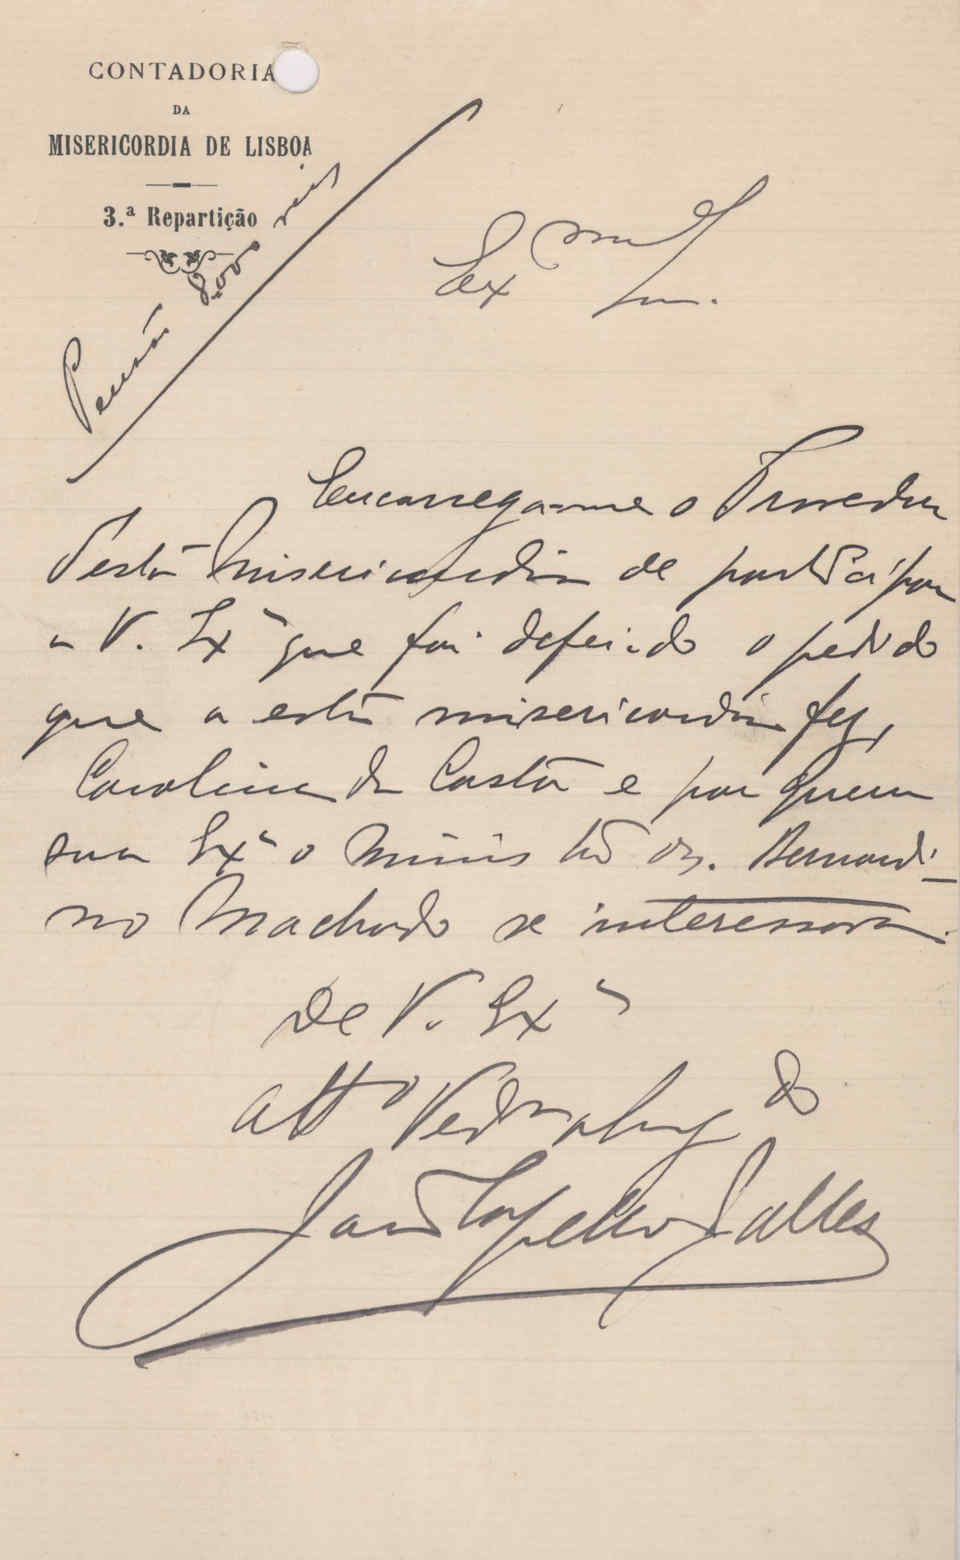 CONTADORIA
DA
MISERICORDIA DE LISBOA
3.ª Repartição
Pensão 2,000 reis
Ex.mo Snr.
Encarrega-me o Provedor
desta Misericordia de participar
a V. Exª que foi deferido o pedido
que a esta misericordia fez,
Carolina da Costa e por quem
sua Exª o Ministro Dr. Bernardi-
no Machado se interessára.
De V. Exª
Attº Vedor obrgdo
Salles